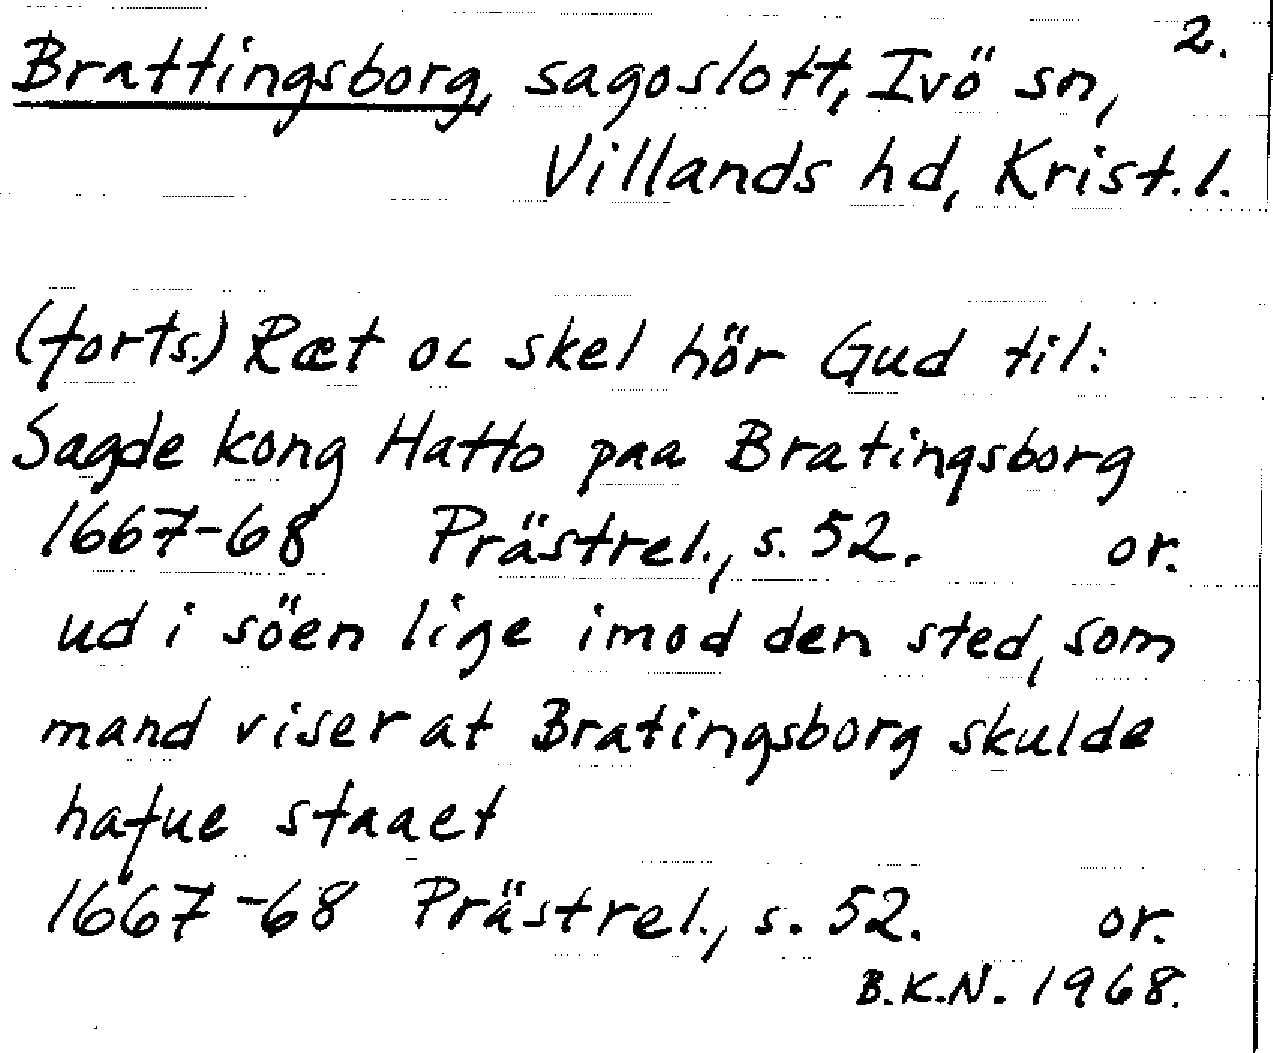 2.
Brattingsborg, sagoslott, Ivö sn,
Villands hd, Krist. l.
(forts.) Ræt oc skel hör Gud til:
Sagde kong Hatto paa Bratingsborg
1667-68 Prästrel., s. 52. or.
ud i söen lige imod den sted, som
mand viser at Bratingsborg skulde
hafue staaet
1667-68 Prästrel., s. 52. or.
B.K.N. 1968.